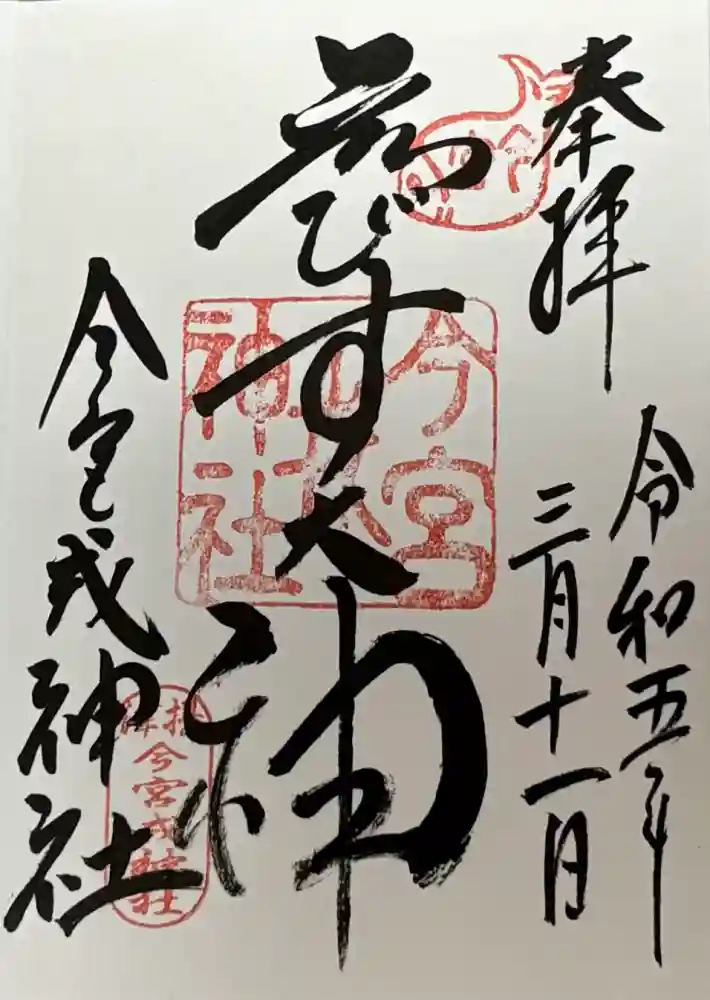 奉拝
令和五年
三月十一日
えびす大神
今宮戎神社
今宮
神社
今宮戎神社